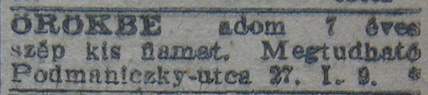 ÖRÖKBE adom 7 éves
szép kis fiamat. Megtudható
Podmaniczky-utca 27. I. 9. *